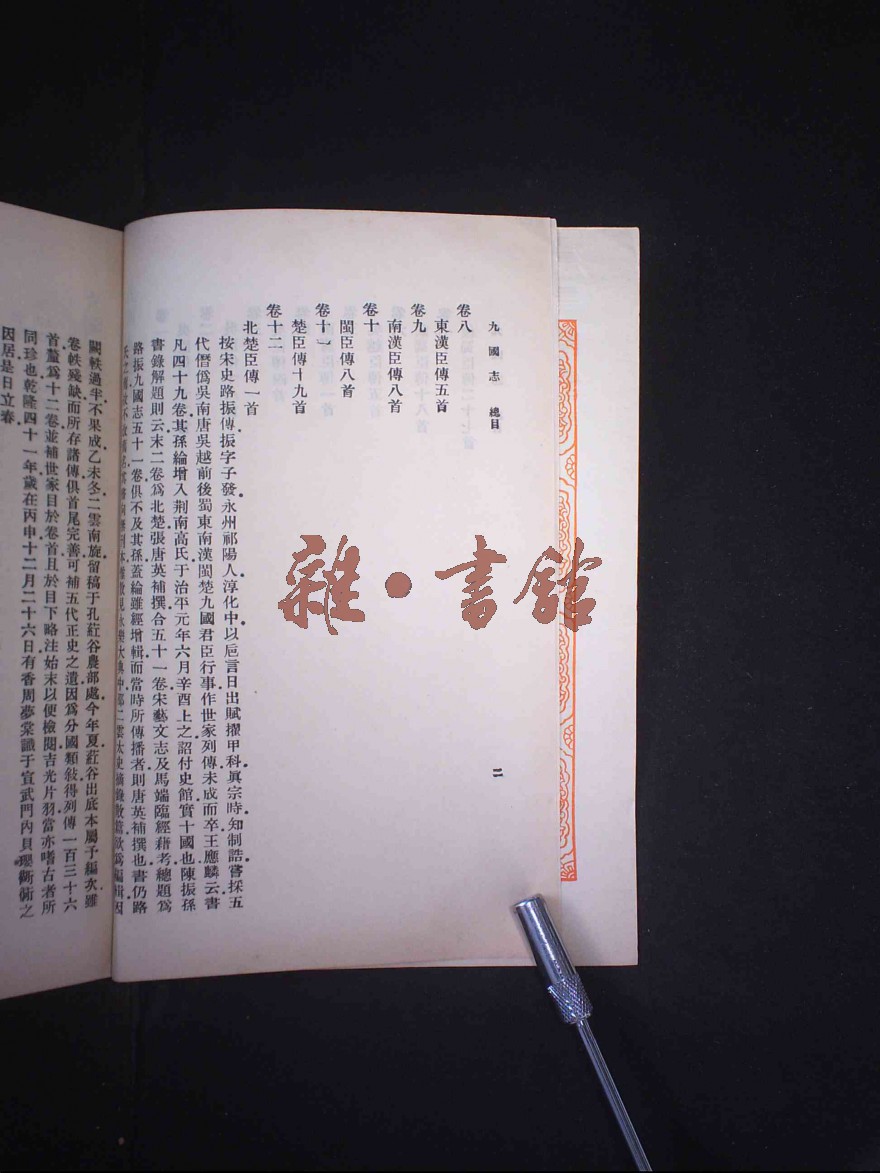 九國志 總目 二
卷八
東漢臣傳五首
卷九
南漢臣傳八首
卷十
閩臣傳八首
卷十一
楚臣傳十九首
卷十二
北楚臣傳一首
按宋史路振傳振字子發永州祁陽人淳化中以巵言日出賦擢甲科眞宗時知制誥嘗採五
代僭僞吳南唐吳越前後蜀東南漢閩楚九國君臣行事作世家列傳未成而卒王應麟云書
凡四十九卷其孫綸增入荆南高氏于治平元年六月辛酉上之詔付史館實十國也陳振孫
書錄解題則云末二卷爲北楚張唐英補撰合五十一卷宋藝文志及馬端臨經藉考總題爲
路振九國志五十一卷俱不及其孫蓋綸雖經增輯而當時所傳播者則唐英補撰也書仍路
見永樂大典中邵二雲太史
闕軼過半不果成乙未冬二雲南旋留稿于孔葒谷農部處今年夏葒谷出底本屬予編次雖
卷軼殘缺而所存諸傳俱首尾完善可補五代正史之遺因爲分國類敍得列傳一百三十六
首釐爲十二卷並補世家目於卷首且於目下略注始末以便檢閱吉光片羽當亦嗜古者所
同珍也乾隆四十一年歲在丙申十二月二十六日有香周夢棠識于宣武門內貝瓔衚衕之
因居是日立春
雜·書館